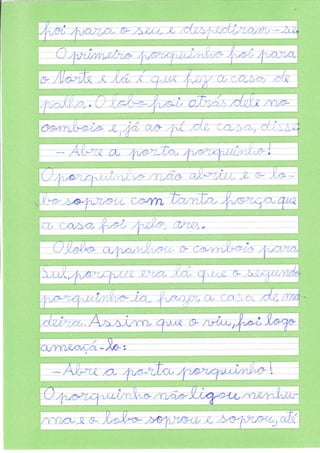 foi para o seu e despediram-se.
O primeiro porquinho foi para
o Norte e lá é que fez a casa de
palha. O lobo foi atrás dele no
comboio e, já ao pé de casa, disse:
– Abre a porta porquinho!
O porquinho não abriu e o lo-
bo soprou com tanta força que
a casa foi pelos ares.
O lobo apanhou o comboio para
Sul, porque era lá que o segundo
porquinho ia fazer a casa de ma-
deira. Assim que o viu, foi logo
ameaçá-lo:
– Abre a porta porquinho!
O porquinho não ligou nenhu-
ma e o lobo soprou e soprou, até